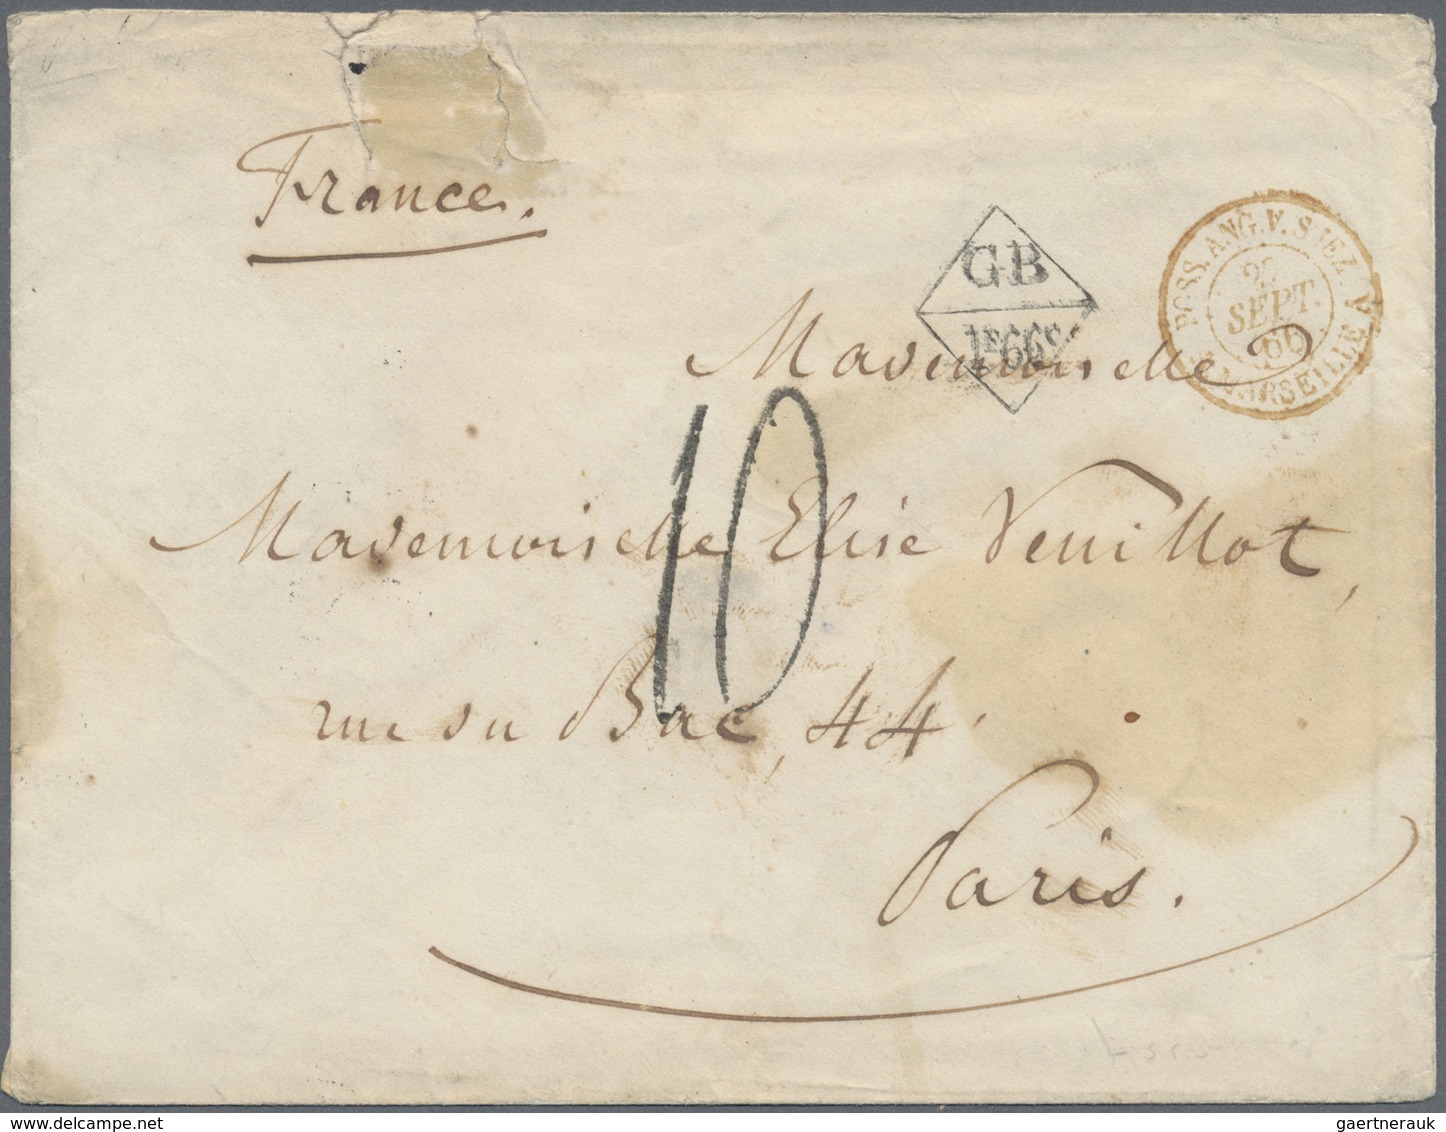 France.
GB
1F66c
POSS. ANG. V. SUEZ A
SEPT.
66
MARSEILLE
Mademoiselle
10
Mademoiselle Elise Veuillot,
rue du Bac, 44.
Paris.
gaertnerauk